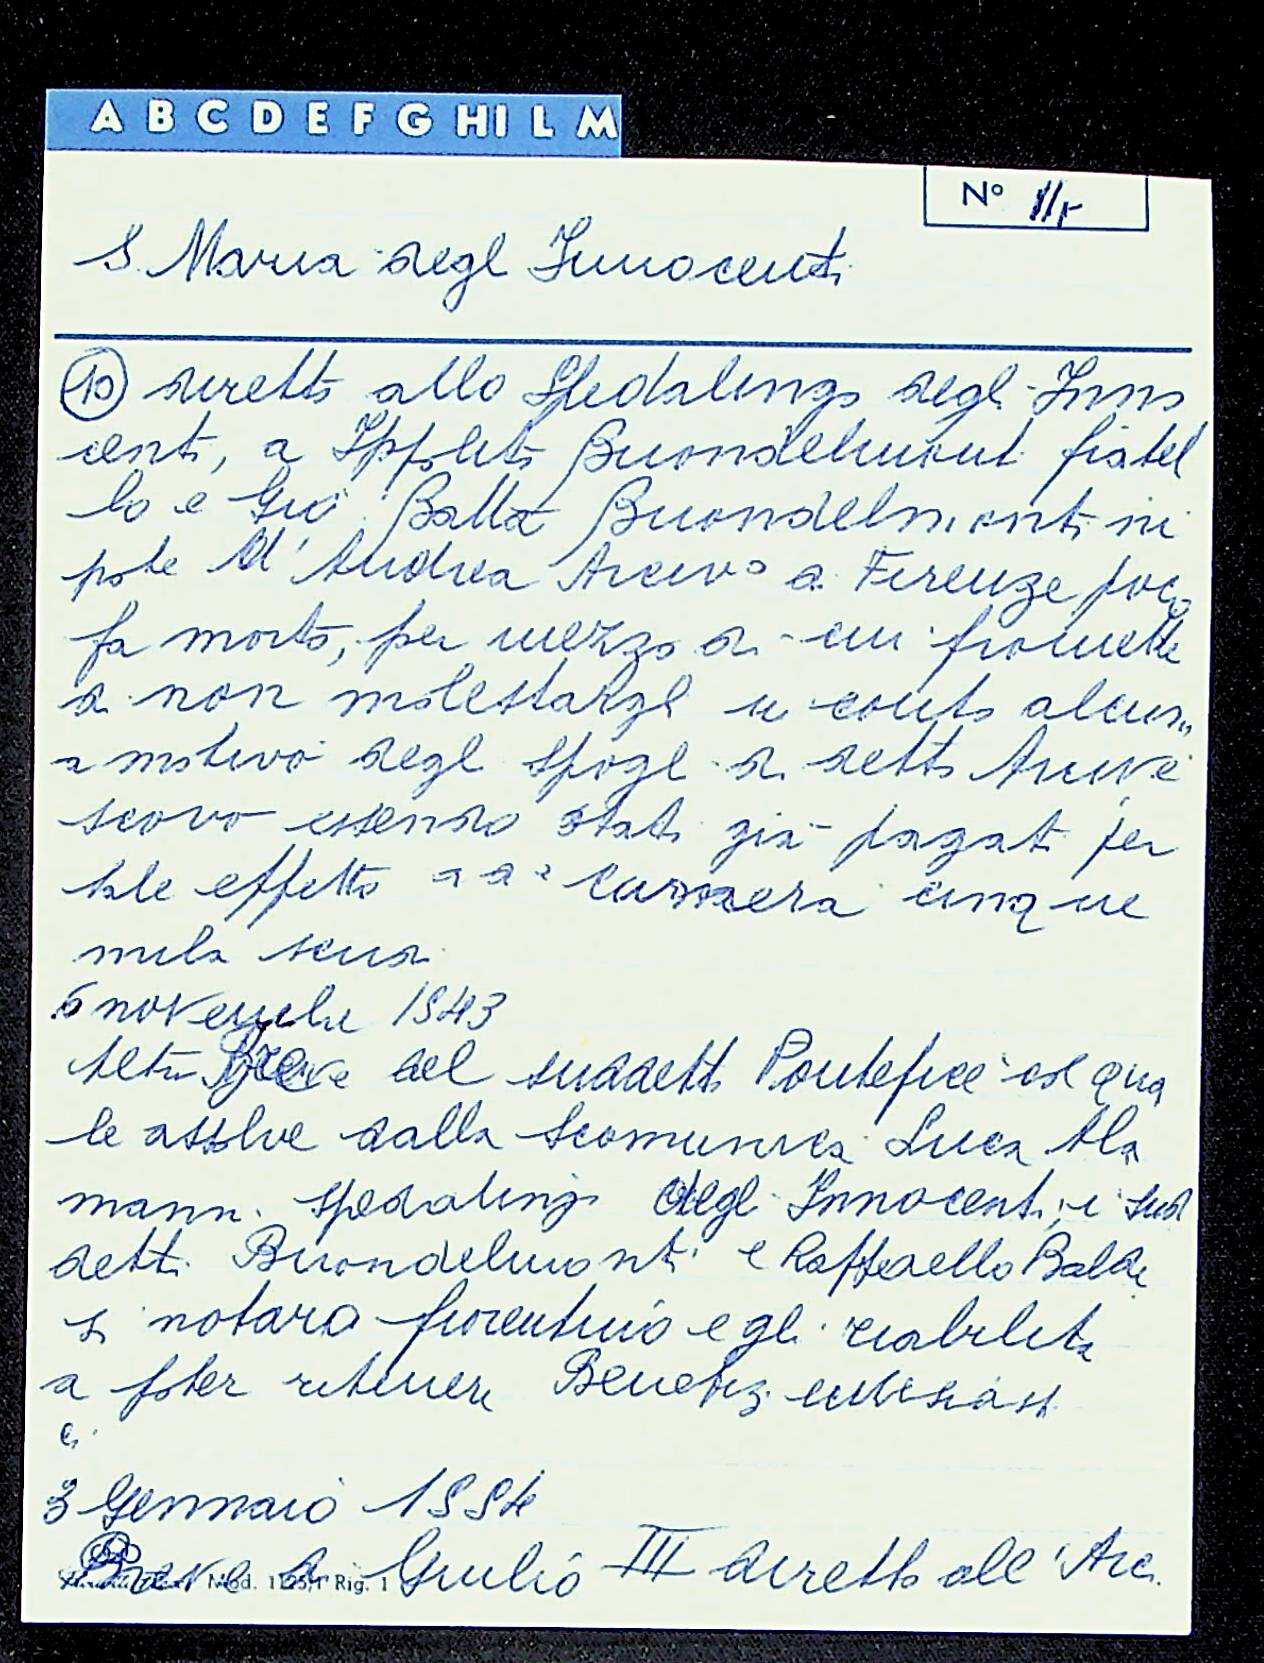 A B C D E F G HI L M
Nº
S. Maria degl Innocenti
10 diretto allo Spedalingo degl Inno
centi, a Ippolito Buondelmonti fratel
lo e Gio Batta Buondelmonti ni
pote d'Andrea Arcivo a Firenze poco
fa morto, per mezzo di cui promette
di non molestargli in conto alcuno
a motivo degl spogl di detto Arcive
scovo essendo stati già pagati per
tale effetto a a camera cinque
mila scudi
6 novembre 1543
Altro Breve del suddetto Pontefice col qua
le assolve dalla scomunica Luca Ala
manni spedalingo degl Innocenti, i sud
detti Buondelmonti e Raffaello Balde
si notaro fiorentino e gli riabilita
a poter ritenere Benefizi ecclesiasti
ci.
3 Gennaio 1554
Breve di Giulio III diretto all'Arc.
Mod. Rig. 1